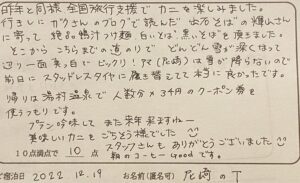 昨年と同様 全国旅行支援で カニを楽しみました。
行きしに ガクさんのブログで読んだ 出石そばの輝山さん
に寄って 鴨汁つけ麺 白いそば、黒いそばを頂きました。
そこから こちらまでの道のりで どんどん雪が深くなって
辺り一面 真っ白にビックリ! アマ(尼崎)は雪が降らないので
前日に スタッドレスタイヤに履き替えてて 本当に良かったです。
帰りは湯村温泉で 人数分×3千円のクーポン券を
使うつもりです。
プラン吟味して また来年 来ますねー
美味しいカニを ごちそう様でした
スタッフさんも ありがとうございました
10点満点で 10 点
朝のコーヒー Good です。
ご宿泊日 2022. 12. 19 お名前(匿名可) 尼崎の T